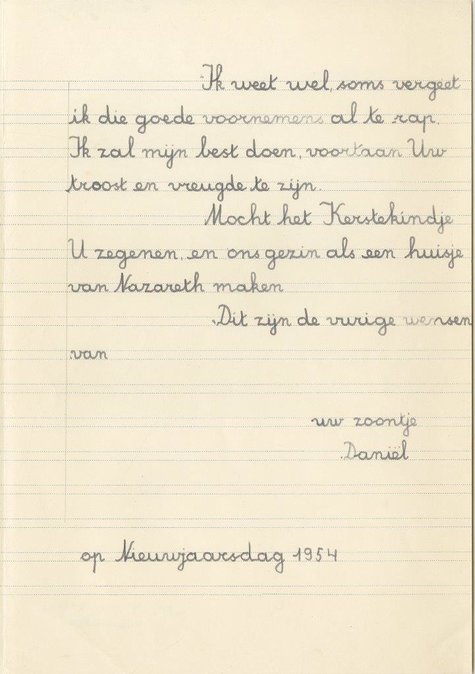 Ik weet wel, soms vergeet
ik die goede voornemens al te rap.
Ik zal mijn best doen, voortaan Uw
troost en vreugde te zijn.
Mocht het Kerstekindje
U zegenen, en ons gezin als een huisje
van Nazareth maken
Dit zijn de vurige wensen
van
uw zoontje
Daniël
op Nieuwjaarsdag 1954